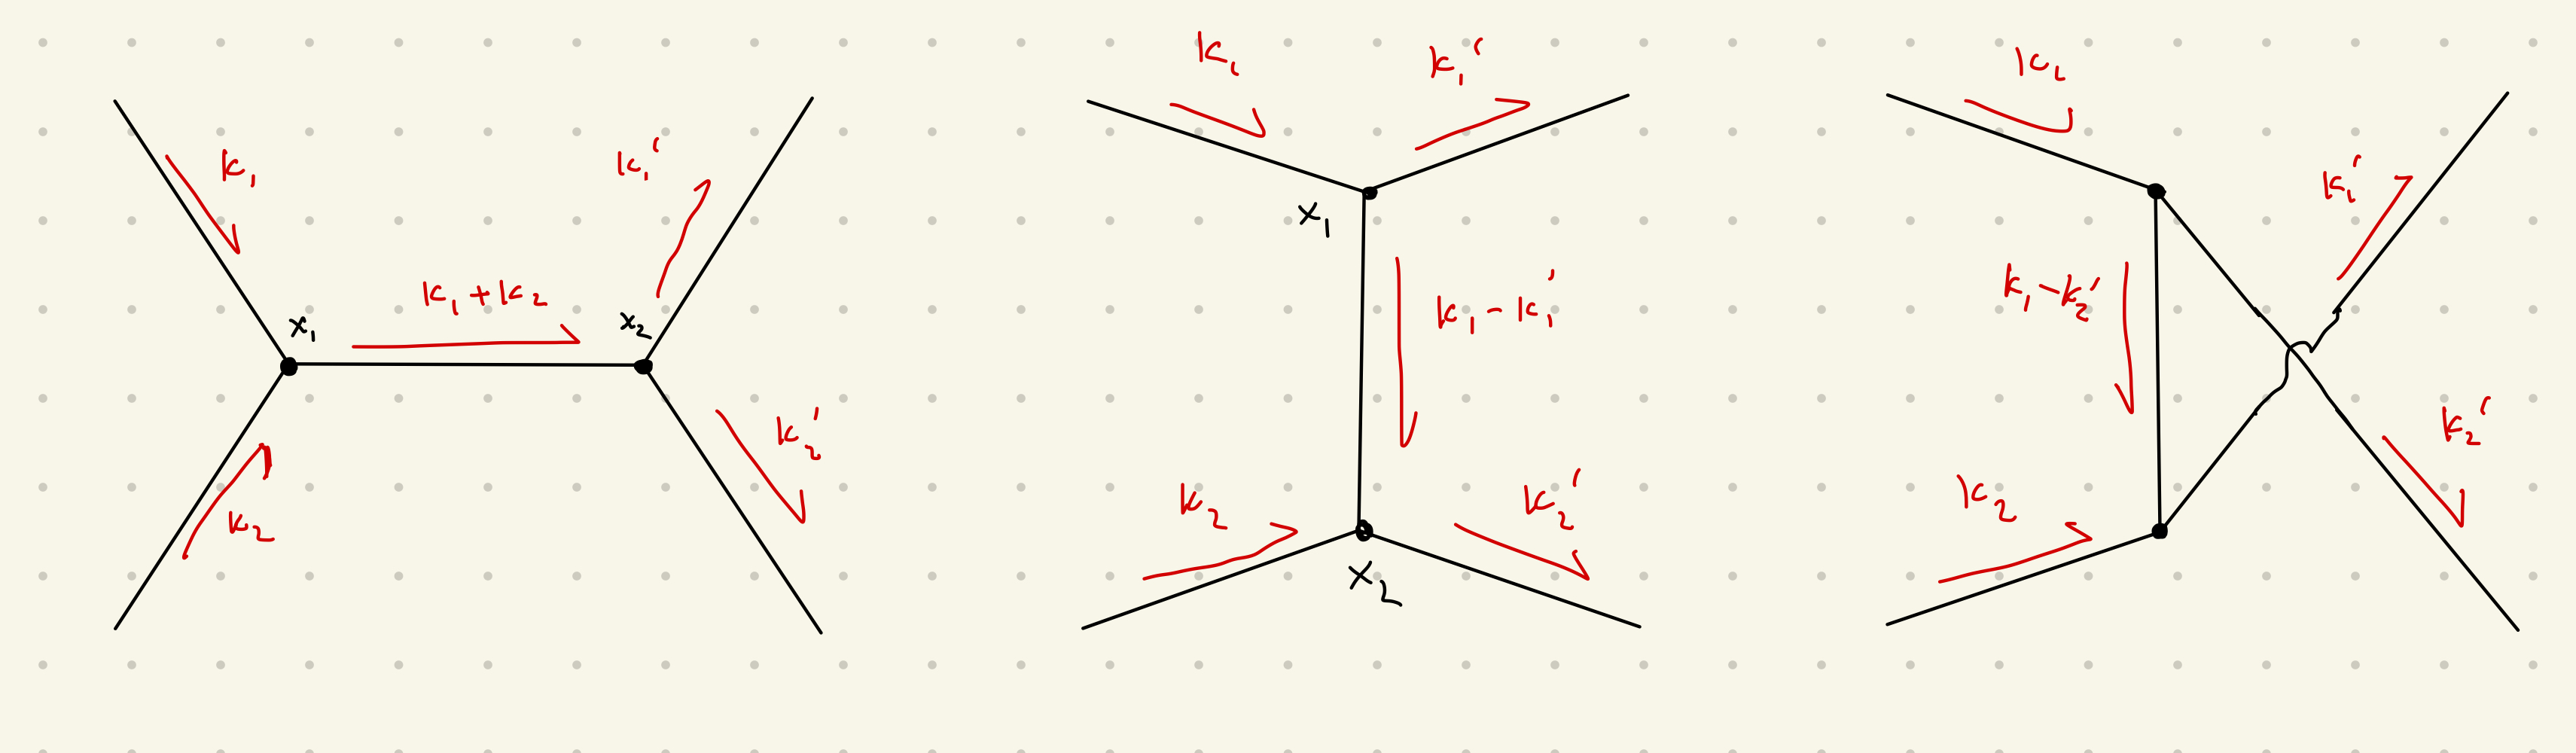 k₁
k₁'
k₁+k₂
x₁
x₂
k₂
k₂'
k₁
k₁'
x₁
k₁-k₁'
k₂
k₂'
x₂
k₁
k₁'
k₁-k₂'
k₂
k₂'